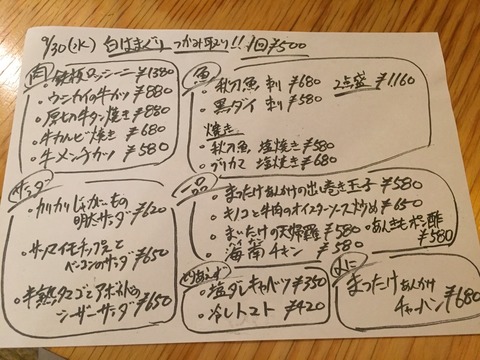 9/30(水) 白はまぐり つかみ取り!! 1回¥500
肉
・鉄板ロッシーニ ¥1380
・ウニカイの牛カツ ¥880
・厚切牛タン焼き ¥880
・牛カルビ焼き ¥680
・牛メンチカツ ¥580
魚
・秋刀魚 刺 ¥680 2点盛 ¥1160
・黒ダイ 刺 ¥580
焼き
・秋刀魚 塩焼き ¥580
・ブリカマ 塩焼き ¥680
サラダ
・カリカリじゃがいもの
明太サラダ ¥620
・サツマイモチップスと
ベーコンのサラダ ¥650
・半熟タマゴとアボカドの
シーザーサラダ ¥650
一品
・まつたけあんかけの出し巻き玉子 ¥580
・キノコと牛肉のオイスターソース炒め ¥650
・まいたけの天婦羅 ¥580
・あんきもポン酢 ¥580
・海南チキン ¥580
とりあえず
・塩ダレキャベツ ¥350
・冷しトマト ¥420
〆に
まつたけあんかけ
チャーハン ¥680